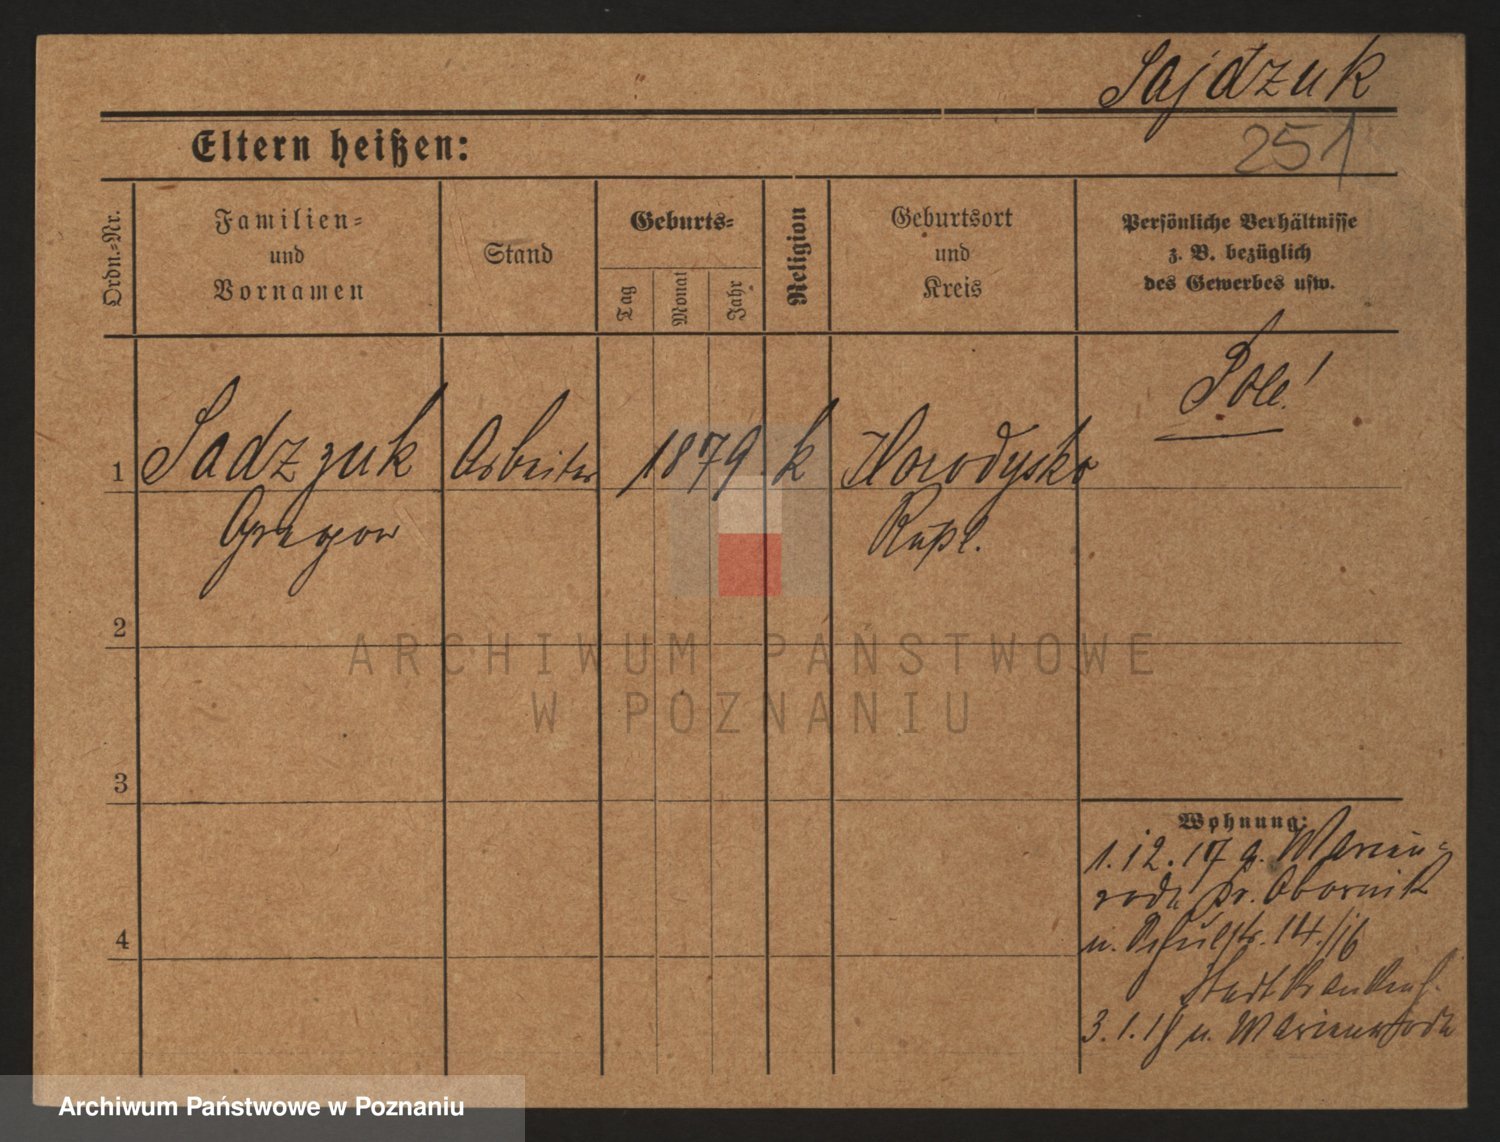 Sajdzuk
251
Eltern heißen:
Ordn.-Nr.
Familien-
und
Vornamen
Stand
Geburts-
Tag
Monat
Jahr
Religion
Geburtsort
und
Kreis
Persönliche Verhältnisse
z. B. bezüglich
des Gewerbes usw.
Pole!
1 Sadzzuk Arbeiter 1879 k Horodysko
Gregor
2
3
4
Wohnung:
1.12.17 a. Marien-
rode Kr. Obornik
n. Schulstr. 14/16
Stadtkrankenh.
3.1.18 n. Marienrode
ARCHIWUM PAŃSTWOWE
W POZNANIU
Archiwum Państwowe w Poznaniu